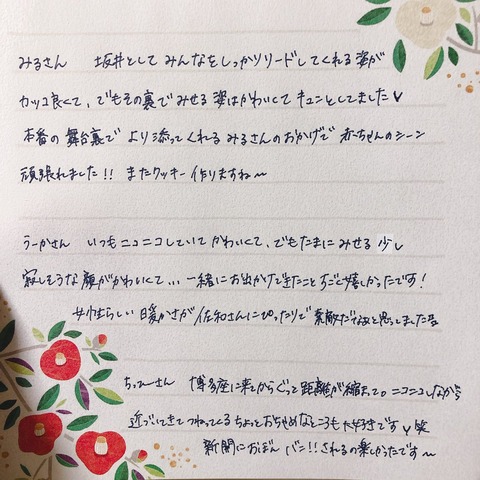 みるさん 坂井として みんなをしっかりリードしてくれる姿が
カッコ良くて、でもその裏でみせる姿はかわいくてキュンとしてました♥
本番の舞台裏で より添ってくれる みるさんのおかげで 赤ちゃんのシーン
頑張れました!! またクッキー作りますね〜
うーかさん いつもニコニコしていて かわいくて、でもたまにみせる 少し
寂しそうな顔がかわいくて... 一緒にお出かけできたこと すごく嬉しかったです!
女性らしい 暖かさが 佐和さんにぴったりで 素敵だなぁと思ってました
ちっさーさん 博多座に来てからぐっと距離が縮まって。ニコニコしながら
近づいてきて つねってくる ちょっとおちゃめなところも 大好きです♥笑
新聞におぼん バン!!されるの楽しかったです〜